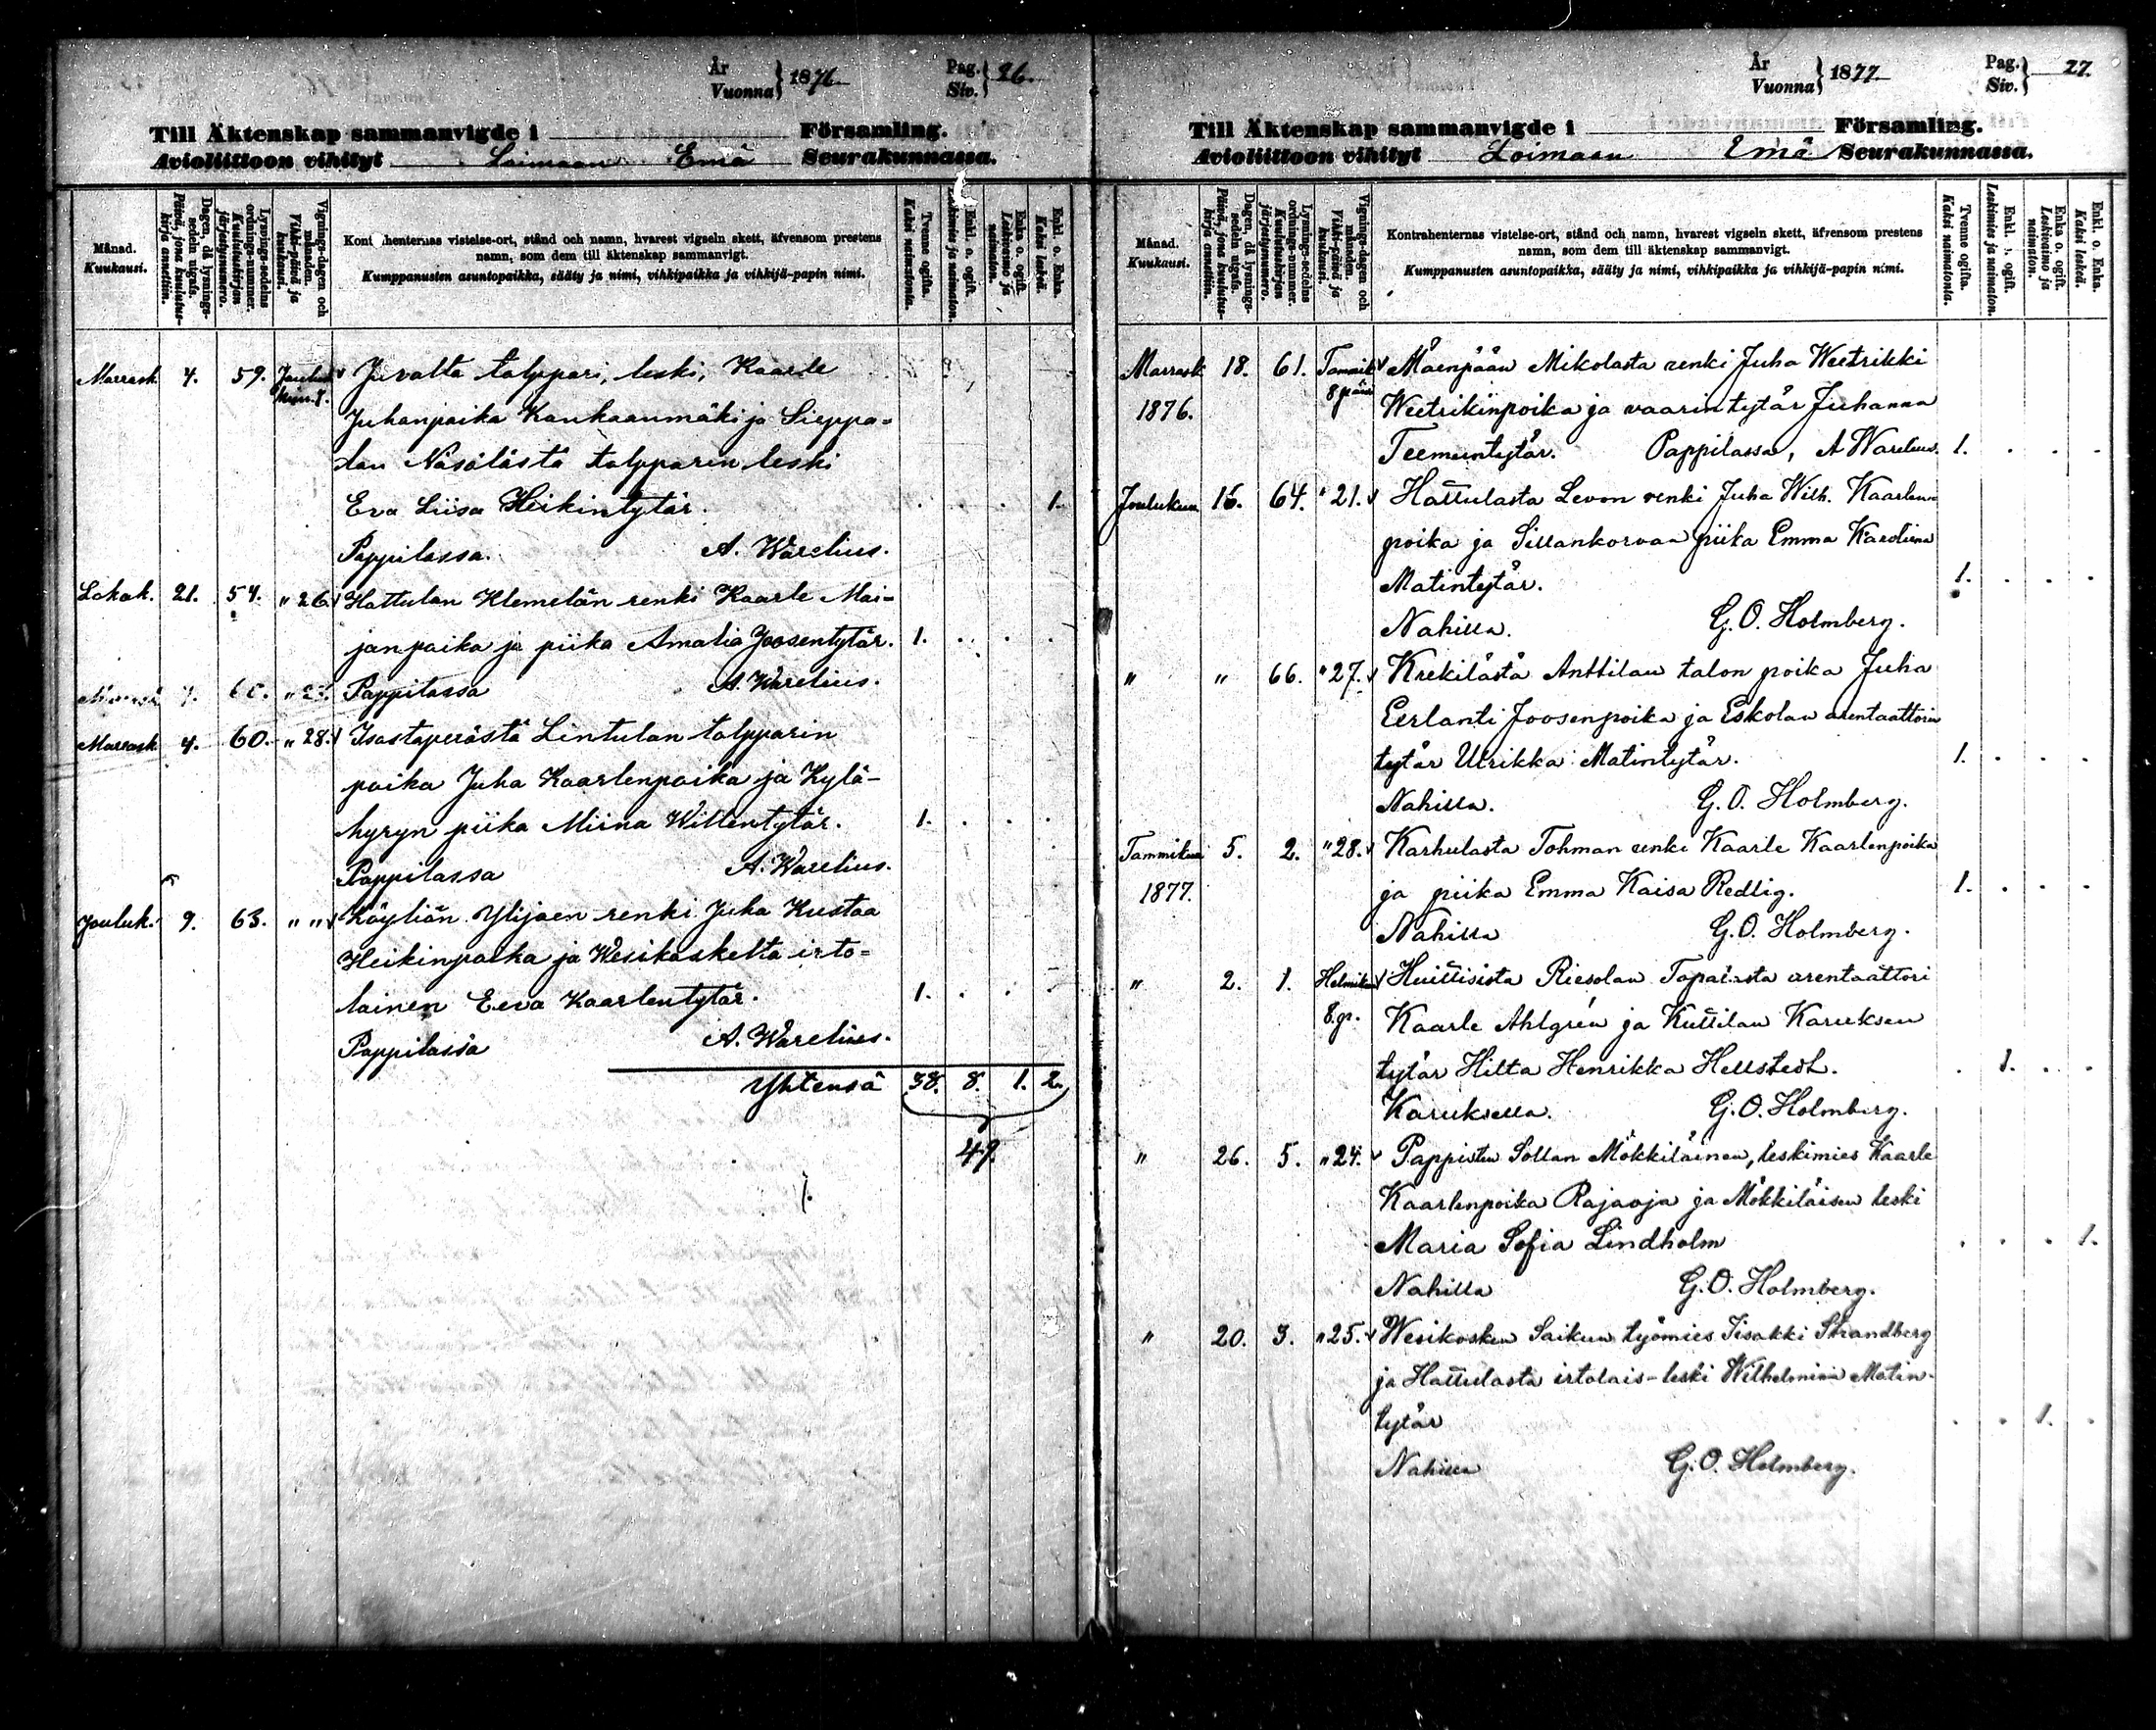 År
Vuonna } 1876
Pag.
Siv. } 26.
Till Äktenskap sammanvigde i Församling.
Avioliittoon vihityt Loimaan Emä Seurakunnassa.
Månad.
Kuukausi.
Dagen, då lysnings-sedeln utgafs.
Päivä, jona kuulutus-kirja annettiin.
Lysnings-sedelns ordnings-nummer.
Kuulutuskirjan järjestysnumero.
Vignings-dagen och månaden.
Vihki-päivä ja kuukausi.
Kontrahenternas vistelse-ort, stånd och namn, hvarest vigseln skett, äfvensom prestens
namn, som dem till äktenskap sammanvigt.
Kumppanusten asuntopaikka, sääty ja nimi, vihkipaikka ja vihkijä-papin nimi.
Tvenne ogifta.
Kaksi naimatonta.
Enkl. o. ogift.
Leskimies ja naimaton.
Enka o. ogift.
Leskivaimo ja naimaton.
Enkl. o. Enka.
Kaksi leskeä.
Marrask. 4. 59. Jouluk. 8. Juvalta talppari, leski, Kaarle
Juhanpoika Kankaanmäki ja Sieppa=
lan Näsälästä talpparin leski
Eva Liisa Heikintytär. 1.
Pappilassa. A. Warelius.
Lokak. 21. 54. " 26. Hattulan Klemelän renki Kaarle Mai=
janpoika ja piika Amalia Joosentytär. 1.
Pappilassa A. Warelius.
Marrask. 4. 60. " 28. Isostaperästä Lintulan talpparin
poika Juha Kaarlenpoika ja Kylä-
hyryn piika Miina Willentytär. 1.
Pappilassa A. Warelius.
Jouluk. 9. 63. " " Köyliän Ylijaen renki Juha Kustaa
Heikinpoika ja Wesikoskelta irto=
lainen Eeva Kaarlentytär. 1.
Pappilassa A. Warelius.
Yhteensä 38. 8. 1. 2.
49.
År
Vuonna } 1877
Pag.
Siv. } 27.
Till Äktenskap sammanvigde i Församling.
Avioliittoon vihityt Loimaan Emä Seurakunnassa.
Månad.
Kuukausi.
Dagen, då lysnings-sedeln utgafs.
Päivä, jona kuulutus-kirja annettiin.
Lysnings-sedelns ordnings-nummer.
Kuulutuskirjan järjestysnumero.
Vignings-dagen och månaden.
Vihki-päivä ja kuukausi.
Kontrahenternas vistelse-ort, stånd och namn, hvarest vigseln skett, äfvensom prestens
namn, som dem till äktenskap sammanvigt.
Kumppanusten asuntopaikka, sääty ja nimi, vihkipaikka ja vihkijä-papin nimi.
Tvenne ogifta.
Kaksi naimatonta.
Enkl. o. ogift.
Leskimies ja naimaton.
Enka o. ogift.
Leskivaimo ja naimaton.
Enkl. o. Enka.
Kaksi leskeä.
Marrask 18. 61. Tammik. 8 Mäenpään Mikolasta renki Juha Weetrikki
1876. Weetrikinpoika ja vaarin tytär Juhanna
Teemuntytär. Pappilassa, A Warelius. 1.
Joulukuu 16. 64. " 21. Hattulasta Levon renki Juha Wilh. Kaarlen
poika ja Sillankorvan piika Emma Karoliina
Matintytär. 1.
Nahilla. G. O. Holmberg.
" " 66. " 27. Krekilästä Anttilan talon poika Juha
Eerlanti Joosenpoika ja Eskolan arentaattorin
tytär Ulrikka Matintytär. 1.
Nahilla. G. O. Holmberg.
Tammikuu 5. 2. " 28. Karhulasta Tohman renki Kaarle Kaarlenpoika
1877. ja piika Emma Kaisa Redlig. 1.
Nahilla G. O. Holmberg.
" 2. 1. Helmikuu 8. p. Huittisista Riesolan Topalasta arentaattori
Kaarle Ahlgrén ja Kuttilan Karuksen
tytär Hilta Henrikka Hellstedt. 1.
Karuksella. G. O. Holmberg.
" 26. 5. " 24. Pappisten Sollan Mökkiläinen, leskimies Kaarle
Kaarlenpoika Rajaoja ja Mökkiläisen leski
Maria Sofia Lindholm 1.
Nahilla G. O. Holmberg.
" 20. 3. " 25. Wesikosken Saikun työmies Iisakki Strandberg
ja Hattulasta irtolais-leski Wilhelmina Matin-
tytär 1.
Nahilla G. O. Holmberg.